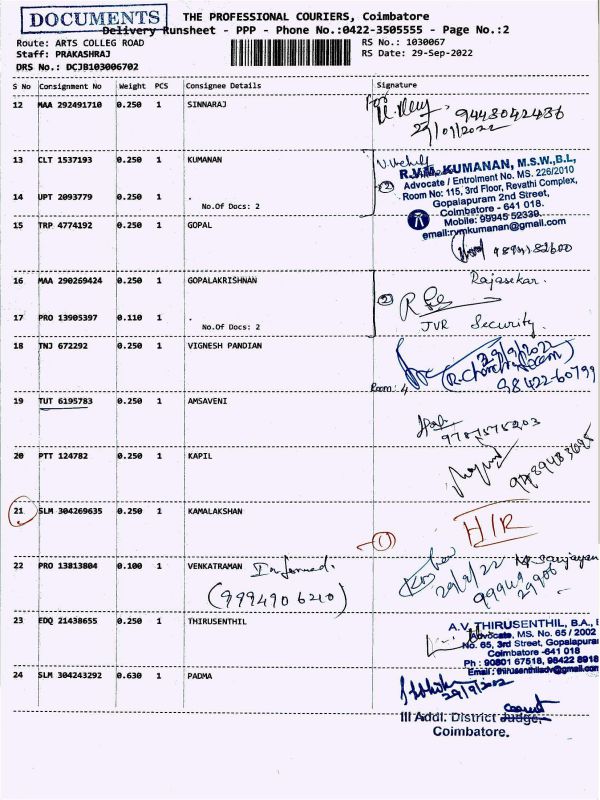 DOCUMENTS
THE PROFESSIONAL COURIERS, Coimbatore
Delivery Runsheet - PPP - Phone No.:0422-3505555 - Page No.:2
Route: ARTS COLLEG ROAD
Staff: PRAKASHRAJ
DRS No.: DCJB103006702
RS No.: 1030067
RS Date: 29-Sep-2022
S No Consignment No Weight PCS Consignee Details Signature
12 MAA 292491710 0.250 1 SINNARAJ
9448042486
13 CLT 1537193 0.250 1 KUMANAN
R.V.M. KUMANAN, M.S.W.,B.L,
Advocate / Entrolment No. MS. 226/2010
Room No: 115, 3rd Floor, Revathi Complex,
Gopalapuram 2nd Street,
Coimbatore - 641 018.
Mobile: 99945 52339
email:rvmkumanan@gmail.com
2
14 UPT 2093779 0.250 1 .
No.Of Docs: 2
15 TRP 4774192 0.250 1 GOPAL
16 MAA 290269424 0.250 1 GOPALAKRISHNAN
Rajasekar.
2
17 PRO 13905397 0.110 1 .
No.Of Docs: 2
JVR Security
18 TNJ 672292 0.250 1 VIGNESH PANDIAN
29/9/2022
98422-60799
Room: 4
19 TUT 6195783 0.250 1 AMSAVENI
20 PTT 124782 0.250 1 KAPIL
21 SLM 304269635 0.250 1 KAMALAKSHAN
H/R
1
22 PRO 13813804 0.100 1 VENKATRAMAN Informed.
(9994906210)
29/9/22
99949
29906
23 EDQ 21438655 0.250 1 THIRUSENTHIL
A.V. THIRUSENTHIL, B.A.,
Advocate, MS. No. 65 / 2002
No. 65, 3rd Street, Gopalapura
Coimbatore -641 018
Ph : 90801 67518, 98422 8918
Email : thirusenthiladv@gmail.com
24 SLM 304243292 0.630 1 PADMA
29/9/2022
III Addl. District Judge,
Coimbatore.